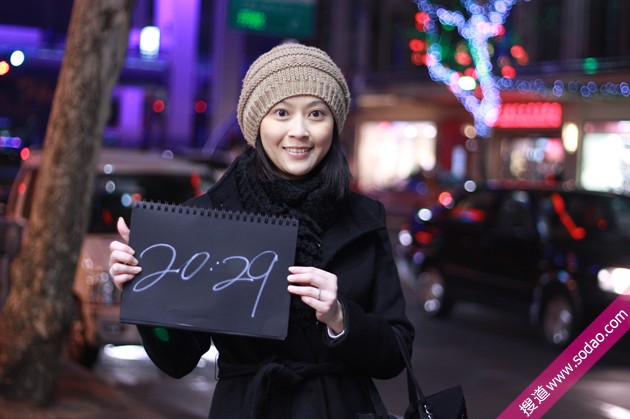 20:29
搜道www.sodao.com